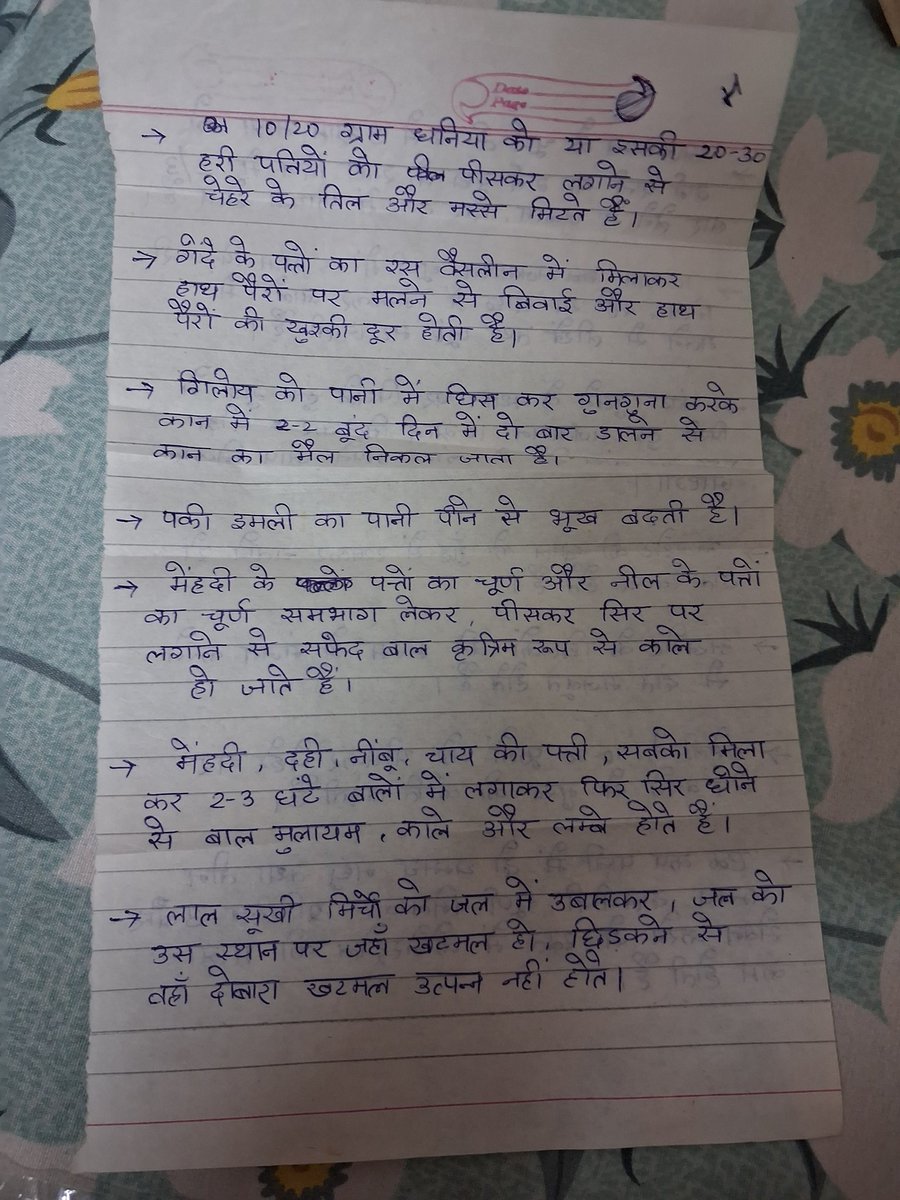 Date
Page
→ 10/20 ग्राम धनिया को या इसकी 20-30
हरी पत्तियों को पीसकर लगाने से
चेहरे के तिल और मस्से मिटते हैं।
→ गेंदे के पत्तों का रस वैसलीन में मिलाकर
हाथ पैरों पर मलने से बिवाई और हाथ
पैरों की खुश्की दूर होती है।
→ गिलोय को पानी में घिस कर गुनगुना करके
कान में 2-2 बूंद दिन में दो बार डालने से
कान का मैल निकल जाता है।
→ पकी इमली का पानी पीने से भूख बढती है।
→ मेंहदी के पत्तों का चूर्ण और नील के पत्तों
का चूर्ण समभाग लेकर, पीसकर सिर पर
लगाने से सफेद बाल कृत्रिम रूप से काले
हो जाते हैं।
→ मेंहदी, दही, नींबू, चाय की पत्ती, सबको मिला
कर 2-3 घंटे बालों में लगाकर फिर सिर धोने
से बाल मुलायम, काले और लम्बे होते हैं।
→ लाल सूखी मिर्चों को जल में उबालकर, जल को
उस स्थान पर जहाँ खटमल हो, छिडकने से
वहाँ दोबारा खटमल उत्पन्न नहीं होते।